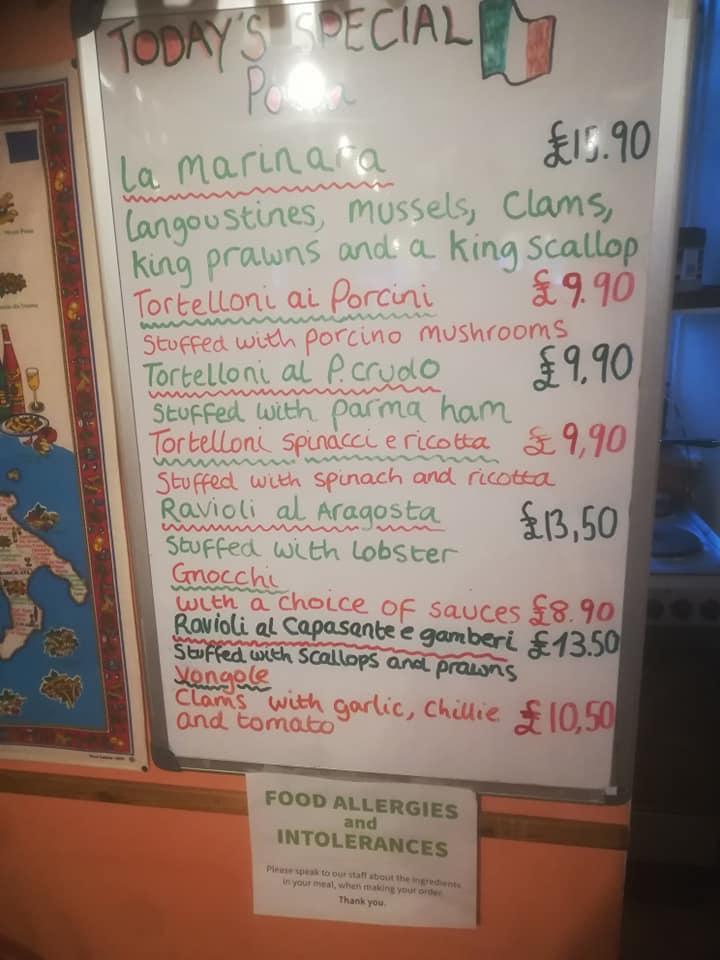 TODAY'S SPECIAL
La Marinara £15.90
Langoustines, Mussels, Clams,
King prawns and a king scallop
Tortelloni ai Porcini £9.90
Stuffed with porcino mushrooms
Tortelloni al P.crudo £9,90
Stuffed with parma ham
Tortelloni spinacci e ricotta £9,90
Stuffed with spinach and ricotta
Ravioli al Aragosta £13,50
Stuffed with Lobster
Gnocchi
with a choice of sauces £8.90
Ravioli al Capasante e gamberi £13.50
Stuffed with Scallops and prawns
Vongole
Clams with garlic, Chillie £10,50
and tomato
FOOD ALLERGIES
and
INTOLERANCES
Please speak to our staff about the ingredients
in your meal, when making your order.
Thank you.